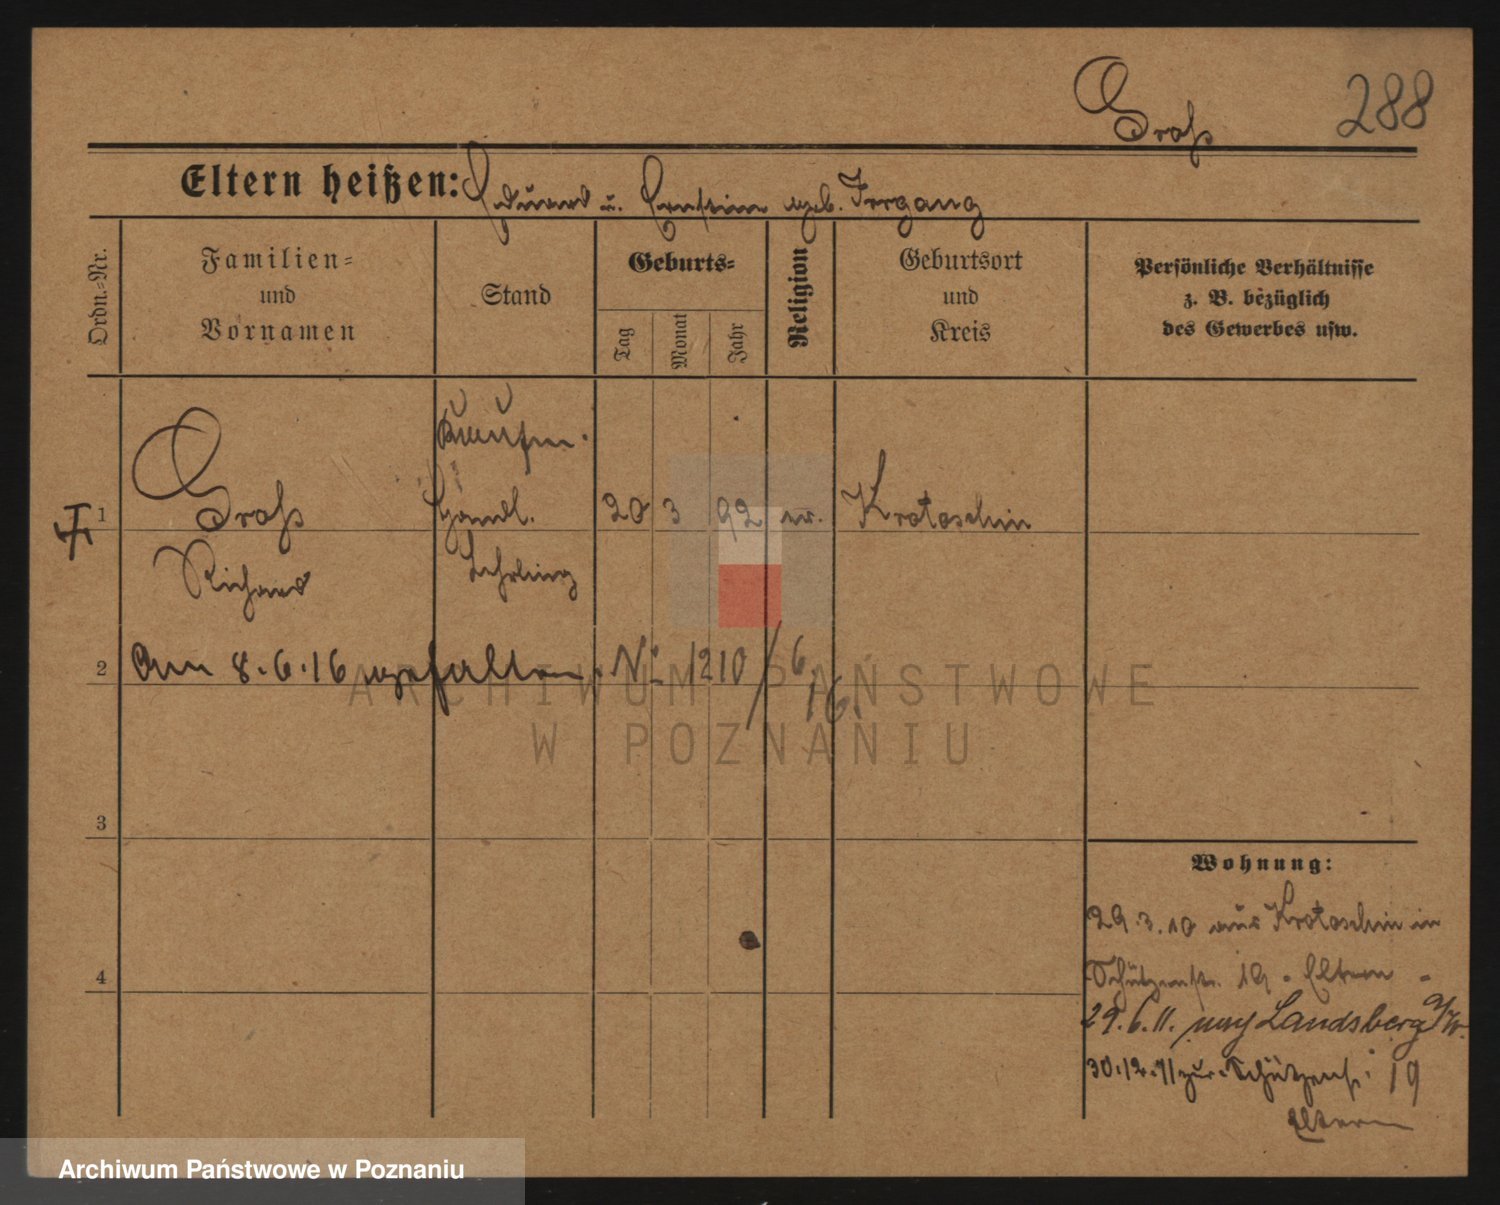 Groß 288
Eltern heißen: Eduard u. Ernstine geb. Irrgang
Ordn.-Nr.
Familien-
und
Vornamen
Stand
Geburts-
Tag
Monat
Jahr
Religion
Geburtsort
und
Kreis
Persönliche Verhältnisse
z. B. bezüglich
des Gewerbes usw.
Kaufm.
1 Groß Handl. 20 3 92 ev. Krotoschin
Richard Lehrling
2 Am 8.6.16 gefallen. No 1210/6.16.
3
4
Wohnung:
29.3.10 aus Krotoschin in
Schützenstr. 19 - Eltern -
29.6.11. nach Landsberg a/W.
30.12.11 zur. Schützenstr. 19
Eltern
ARCHIWUM PAŃSTWOWE
W POZNANIU
Archiwum Państwowe w Poznaniu